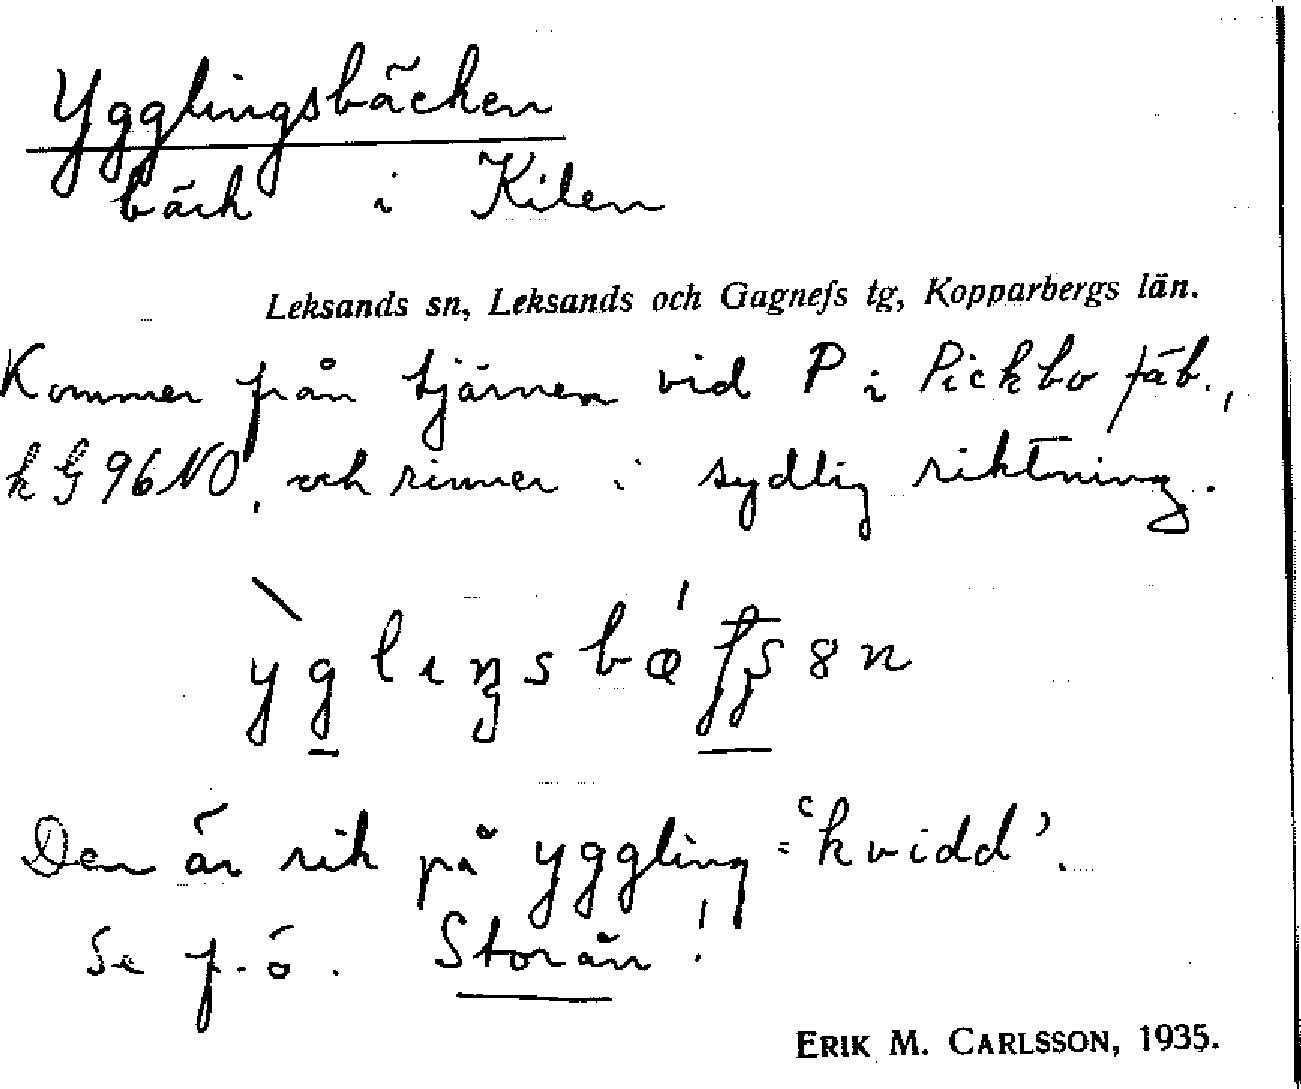 Ygglingsbäcken
bäck i Kilen
Leksands sn, Leksands och Gagnefs tg, Kopparbergs län.
Kommer från tjärnen vid P i Pickbo fäb.,
k G 96 NO, och rinner i sydlig riktning.
Den är rik på yggling = 'kvidd'.
Se f. ö. Storån!
ERIK M. CARLSSON, 1935.